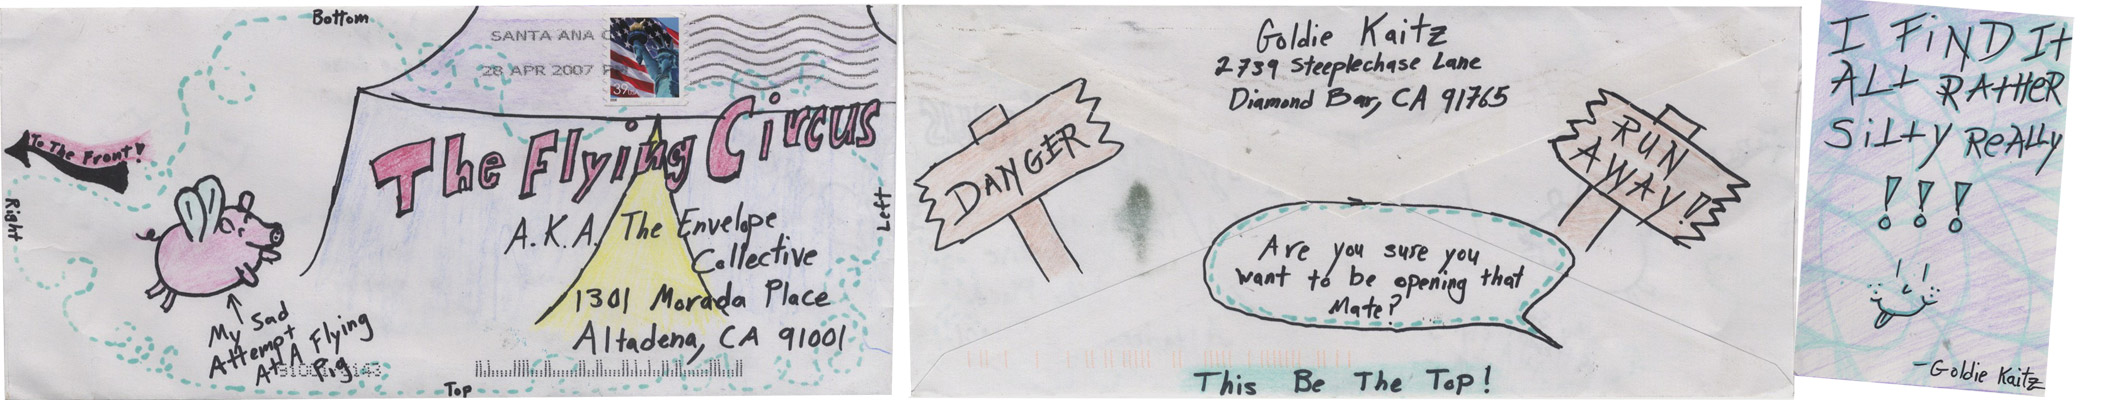 Bottom
SANTA ANA C
28 APR 2007 P
39
To The Front!
The Flying Circus
A.K.A. The Envelope
Collective
1301 Morada Place
Altadena, CA 91001
Right
Left
My Sad
Attempt
At A Flying
Pig
Top
Goldie Kaitz
2739 Steeplechase Lane
Diamond Bar, CA 91765
DANGER
RUN
AWAY!
Are you sure you
want to be opening that
Mate?
This Be The Top!
I FiND It
ALL RAtHeR
SiLty ReALLy
!!!
-Goldie Kaitz